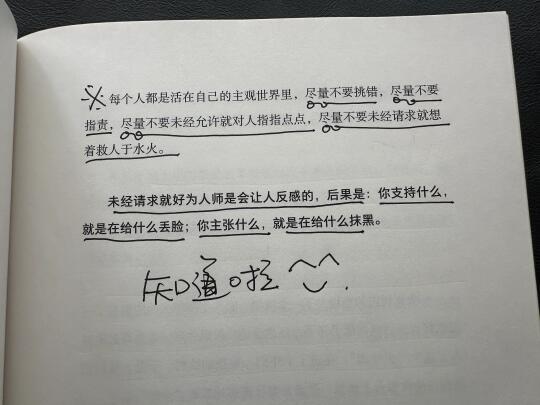 ※每个人都是活在自己的主观世界里，尽量不要挑错，尽量不要
指责，尽量不要未经允许就对人指指点点，尽量不要未经请求就想
着救人于水火。
未经请求就好为人师是会让人反感的，后果是：你支持什么，
就是在给什么丢脸；你主张什么，就是在给什么抹黑。
知道啦